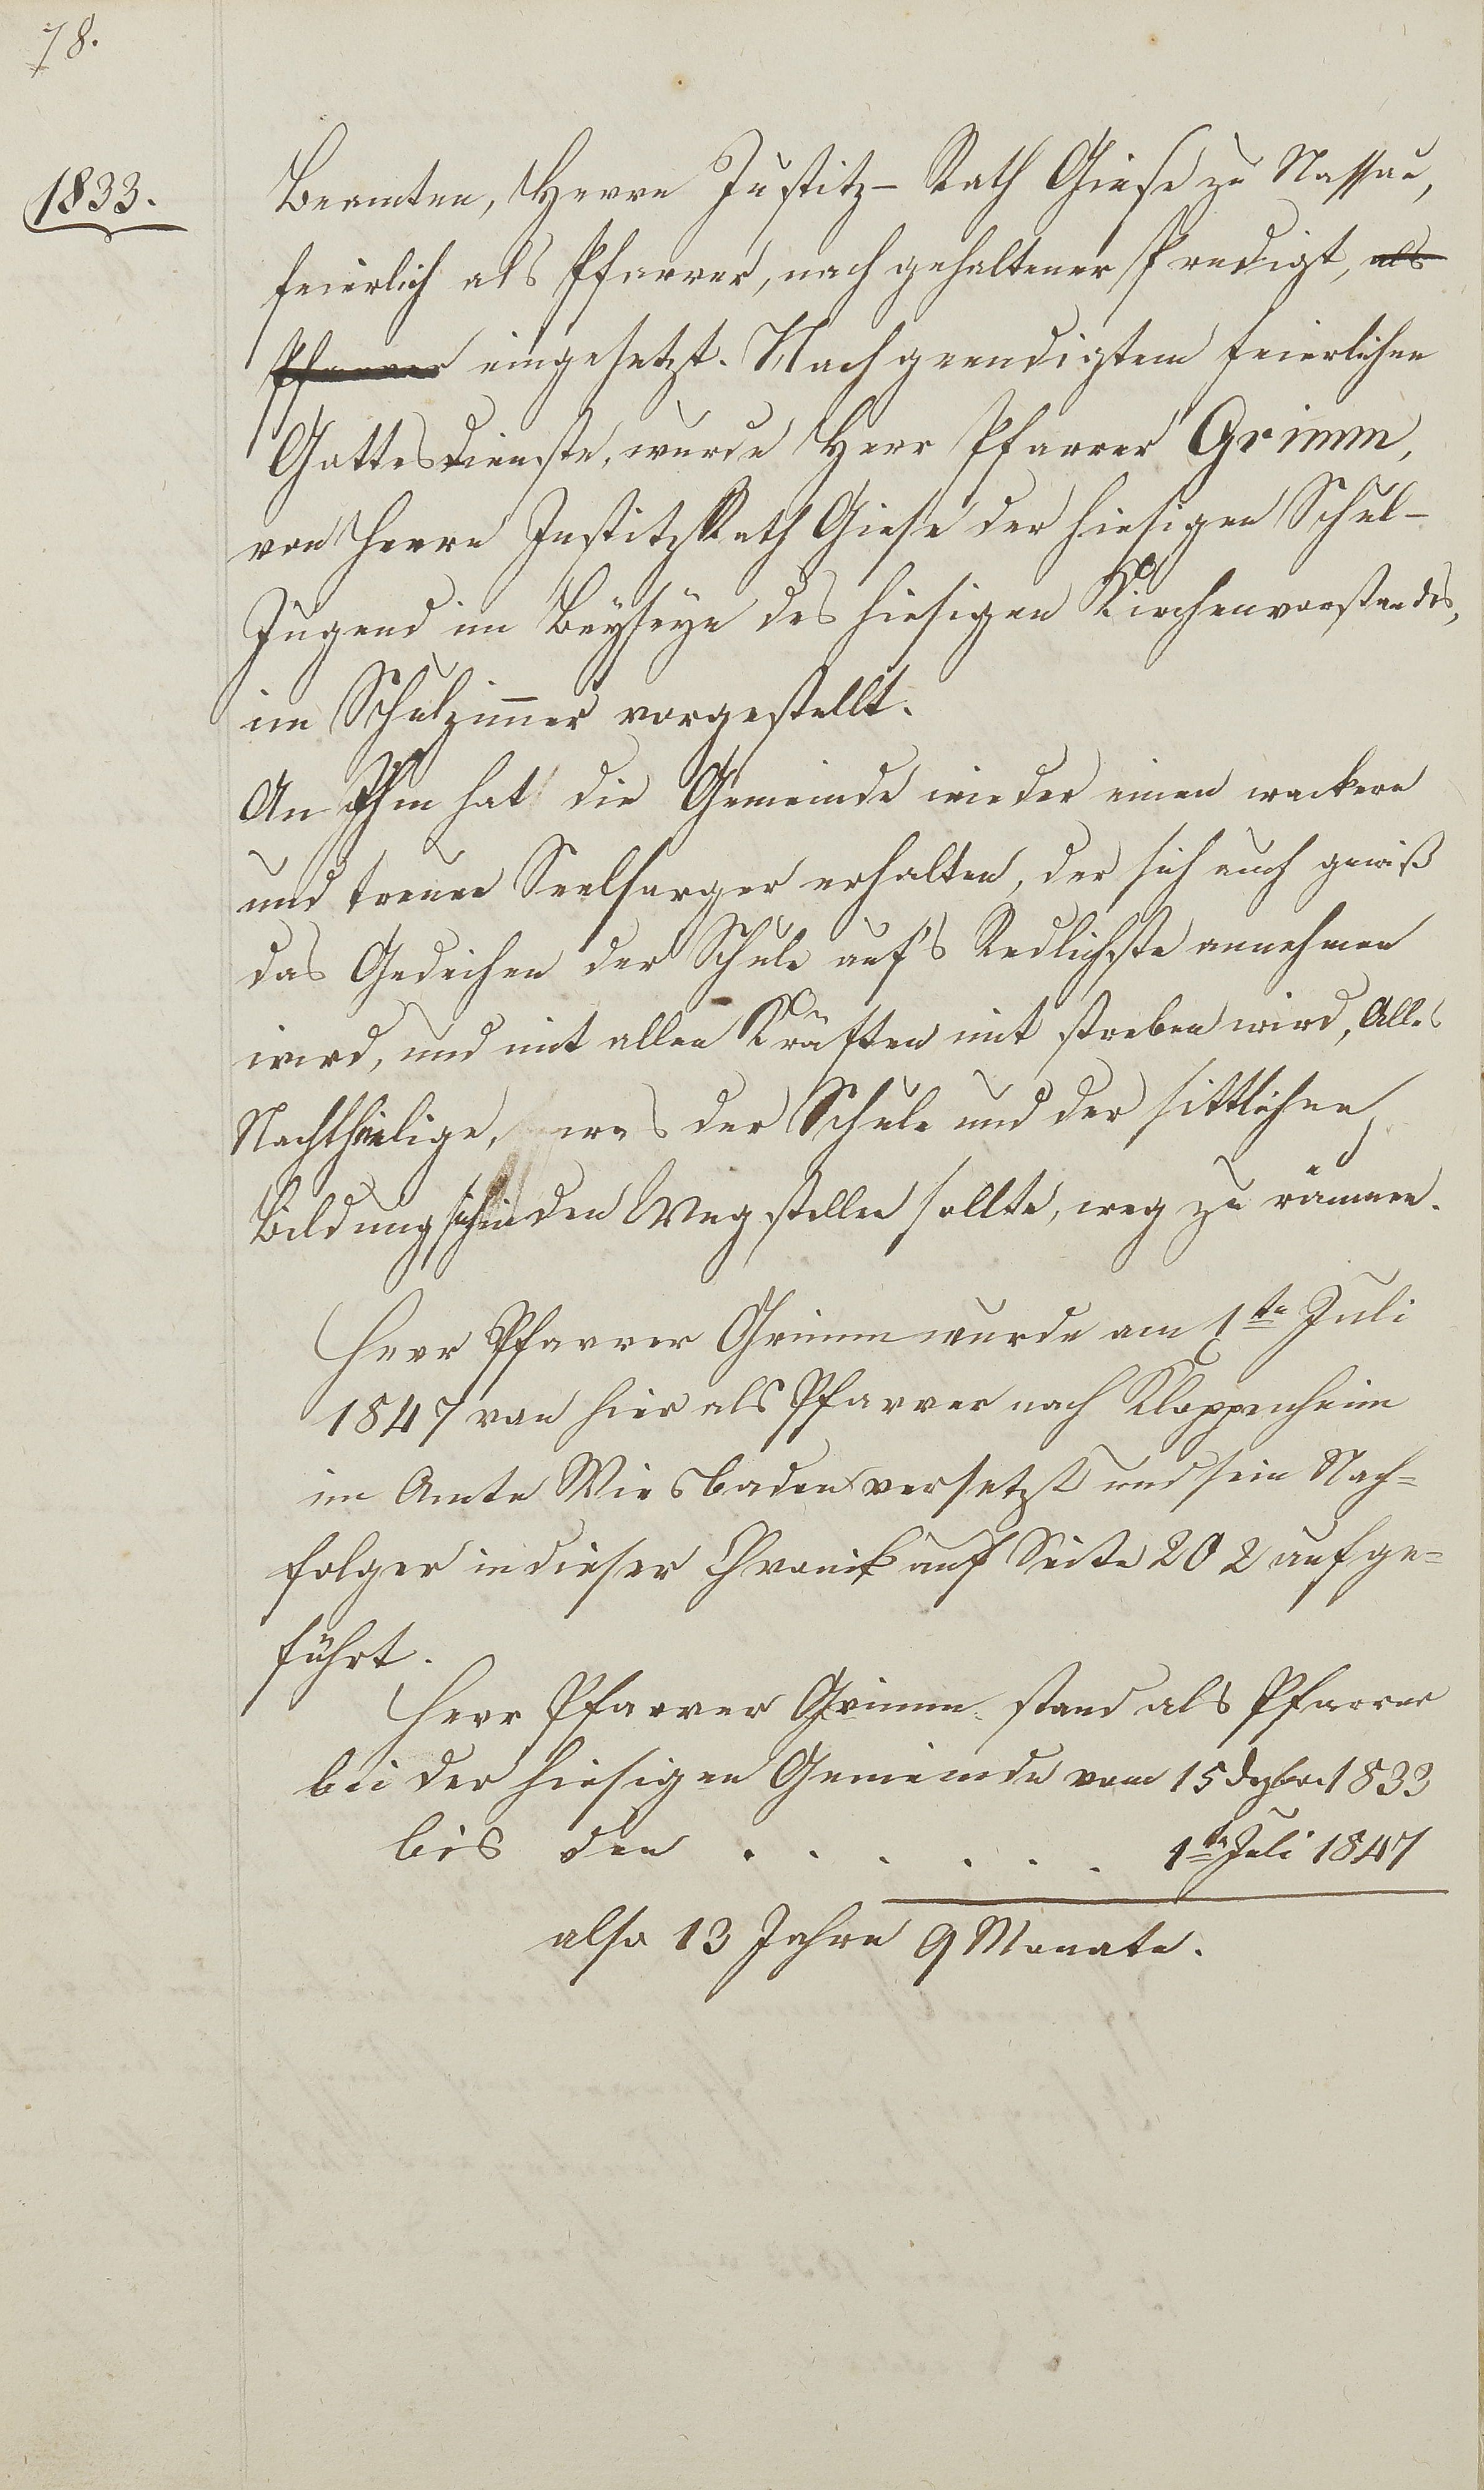 78.
1833.
Beamten, Herrn Justitz- Rath Giese zu Nassau,
feierlich als Pfarrer, nach gehaltener Predigt, als
Pfarrer eingesetzt. Nach geendigtem feierlichen
Gottesdienste, wurde Herr Pfarrer Grimm,
von Herrn Justitz Rath Giese der hiesigen Schul-
Jugend im Beyseyn des hiesigen Kirchenvorstandes,
im Schulzimmer vorgestellt.
An Ihm hat die Gemeinde wieder einen wackern
und treuen Seelsorger erhalten, der sich auch gewiß
das Gedeihen der Schule auf's Redlichste annehmen
wird, und mit allen Kräften mit streben wird, Alles
Nachtheilige, was der Schule und der sittlichen
Bildung sich in den Weg stellen sollte, weg zu räumen.
Herr Pfarrer Grimm wurde am 1ten Juli
1847 von hier als Pfarrer nach Kloppenheim
im Amte Wiesbaden versetzt und sein Nach=
folger in dieser Chronik auf Seite 202 aufge=
führt.
Herr Pfarrer Grimm stand als Pfarrer
bei der hiesigen Gemeinde vom 15 Dezbr. 1833
bis den . . . . . . 1ten Juli 1847
also 13 Jahre 9 Monate.